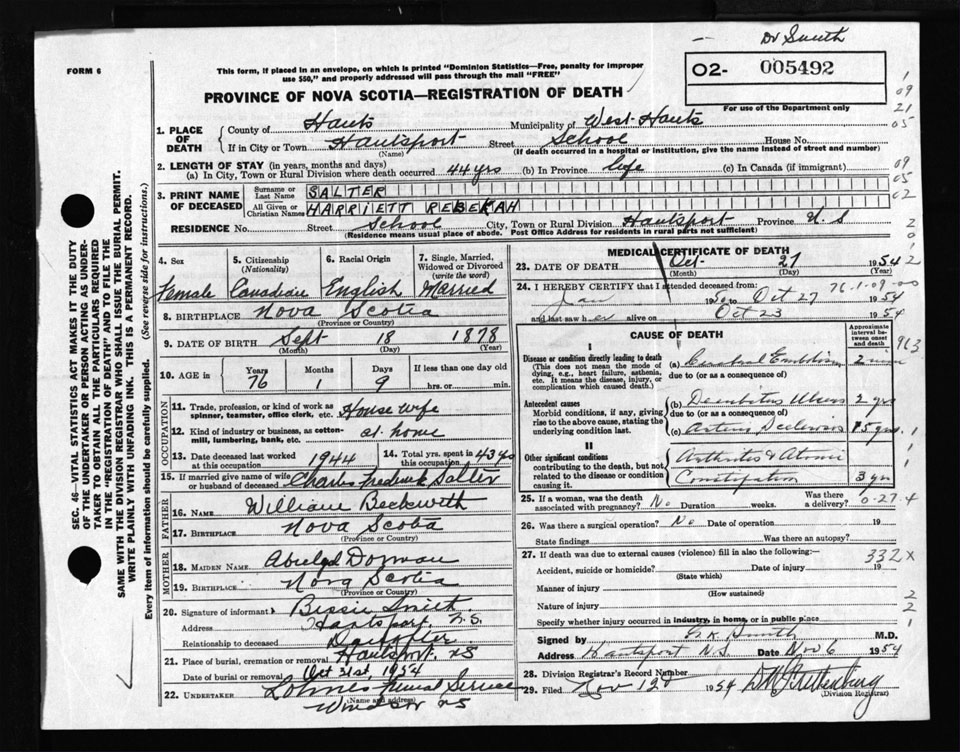 Dr Smith
FORM 6
This form, if placed in an envelope, on which is printed "Dominion Statistics—Free, penalty for improper use $50," and properly addressed will pass through the mail "FREE"
02- 005492
For use of the Department only
PROVINCE OF NOVA SCOTIA—REGISTRATION OF DEATH
1. PLACE OF DEATH
County of Hants Municipality of West Hants
If in City or Town Hantsport Street School House No.
(Name) (If death occurred in a hospital or institution, give the name instead of street and number)
2. LENGTH OF STAY (in years, months and days)
(a) In City, Town or Rural Division where death occurred 44 yrs (b) In Province life (c) In Canada (if immigrant)
3. PRINT NAME OF DECEASED
Surname or Last Name SALTER
All Given or Christian Names HARRIETT REBEKAH
RESIDENCE No. Street School City, Town or Rural Division Hantsport Province N.S
(Residence means usual place of abode. Post Office Address for residents in rural parts not sufficient)
09
21
05
09
05
02
SEC. 46—VITAL STATISTICS ACT MAKES IT THE DUTY OF THE UNDERTAKER OR PERSON ACTING AS UNDERTAKER TO OBTAIN ALL THE PARTICULARS REQUIRED IN THE "REGISTRATION OF DEATH" AND TO FILE THE SAME WITH THE DIVISION REGISTRAR WHO SHALL ISSUE THE BURIAL PERMIT.
WRITE PLAINLY WITH UNFADING INK. THIS IS A PERMANENT RECORD.
Every item of information should be carefully supplied. (See reverse side for instructions.)
4. Sex Female
5. Citizenship (Nationality) Canadian
6. Racial Origin English
7. Single, Married, Widowed or Divorced (write the word) Married
8. BIRTHPLACE Nova Scotia
(Province or Country)
9. DATE OF BIRTH Sept 18 1878
(Month) (Day) (Year)
10. AGE in Years 76 Months 1 Days 9 If less than one day old hrs. or min.
OCCUPATION
11. Trade, profession, or kind of work as spinner, teamster, office clerk, etc. House wife
12. Kind of industry or business, as cotton-mill, lumbering, bank, etc. at home
13. Date deceased last worked at this occupation 1944
14. Total yrs. spent in this occupation 43 yrs
15. If married give name of wife or husband of deceased Charles Frederick Salter
FATHER
16. NAME William Beckwith
17. BIRTHPLACE Nova Scotia
(Province or Country)
MOTHER
18. MAIDEN NAME Dorman
19. BIRTHPLACE Nova Scotia
(Province or Country)
20. Signature of informant Bessie Smith
Address Hantsport N.S.
Relationship to deceased Daughter
21. Place of burial, cremation or removal Hantsport. NS
Date of burial or removal Oct 31st, 1954
22. UNDERTAKER Lohnes Funeral Service
(Name and address)
Windsor NS
MEDICAL CERTIFICATE OF DEATH
23. DATE OF DEATH Oct- 27 1954
(Month) (Day) (Year)
76-1-09-00
24. I HEREBY CERTIFY that I attended deceased from:
Jan 1950 to Oct 27 1954
and last saw her alive on Oct 23 1954
CAUSE OF DEATH
Approximate interval between onset and death
963
I
Disease or condition directly leading to death
(This does not mean the mode of dying, e.g., heart failure, asthenia, etc. It means the disease, injury, or complication which caused death.)
(a) Cerebral Embolism 2 min
due to (or as a consequence of)
Antecedent causes
Morbid conditions, if any, giving rise to the above cause, stating the underlying condition last.
(b) Decubitus Ulcers 2 yrs
due to (or as a consequence of)
(c) Arterio Sclerosis 15 yrs
II
Other significant conditions
contributing to the death, but not related to the disease or condition causing it.
Arthritis & Atonic
Constipation 3 yrs
25. If a woman, was the death associated with pregnancy? No Duration weeks. Was there a delivery?
0-27-4
26. Was there a surgical operation? No Date of operation 19
State findings Was there an autopsy?
27. If death was due to external causes (violence) fill in also the following:—
332 X
Accident, suicide or homicide? Date of injury 19
(State which)
Manner of injury
(How sustained)
Nature of injury
Specify whether injury occurred in industry, in home, or in public place
Signed by Smith M.D.
Address Hantsport N.S. Date Nov 6 1954
28. Division Registrar's Record Number
29. Filed Nov 12 1954
(Division Registrar)